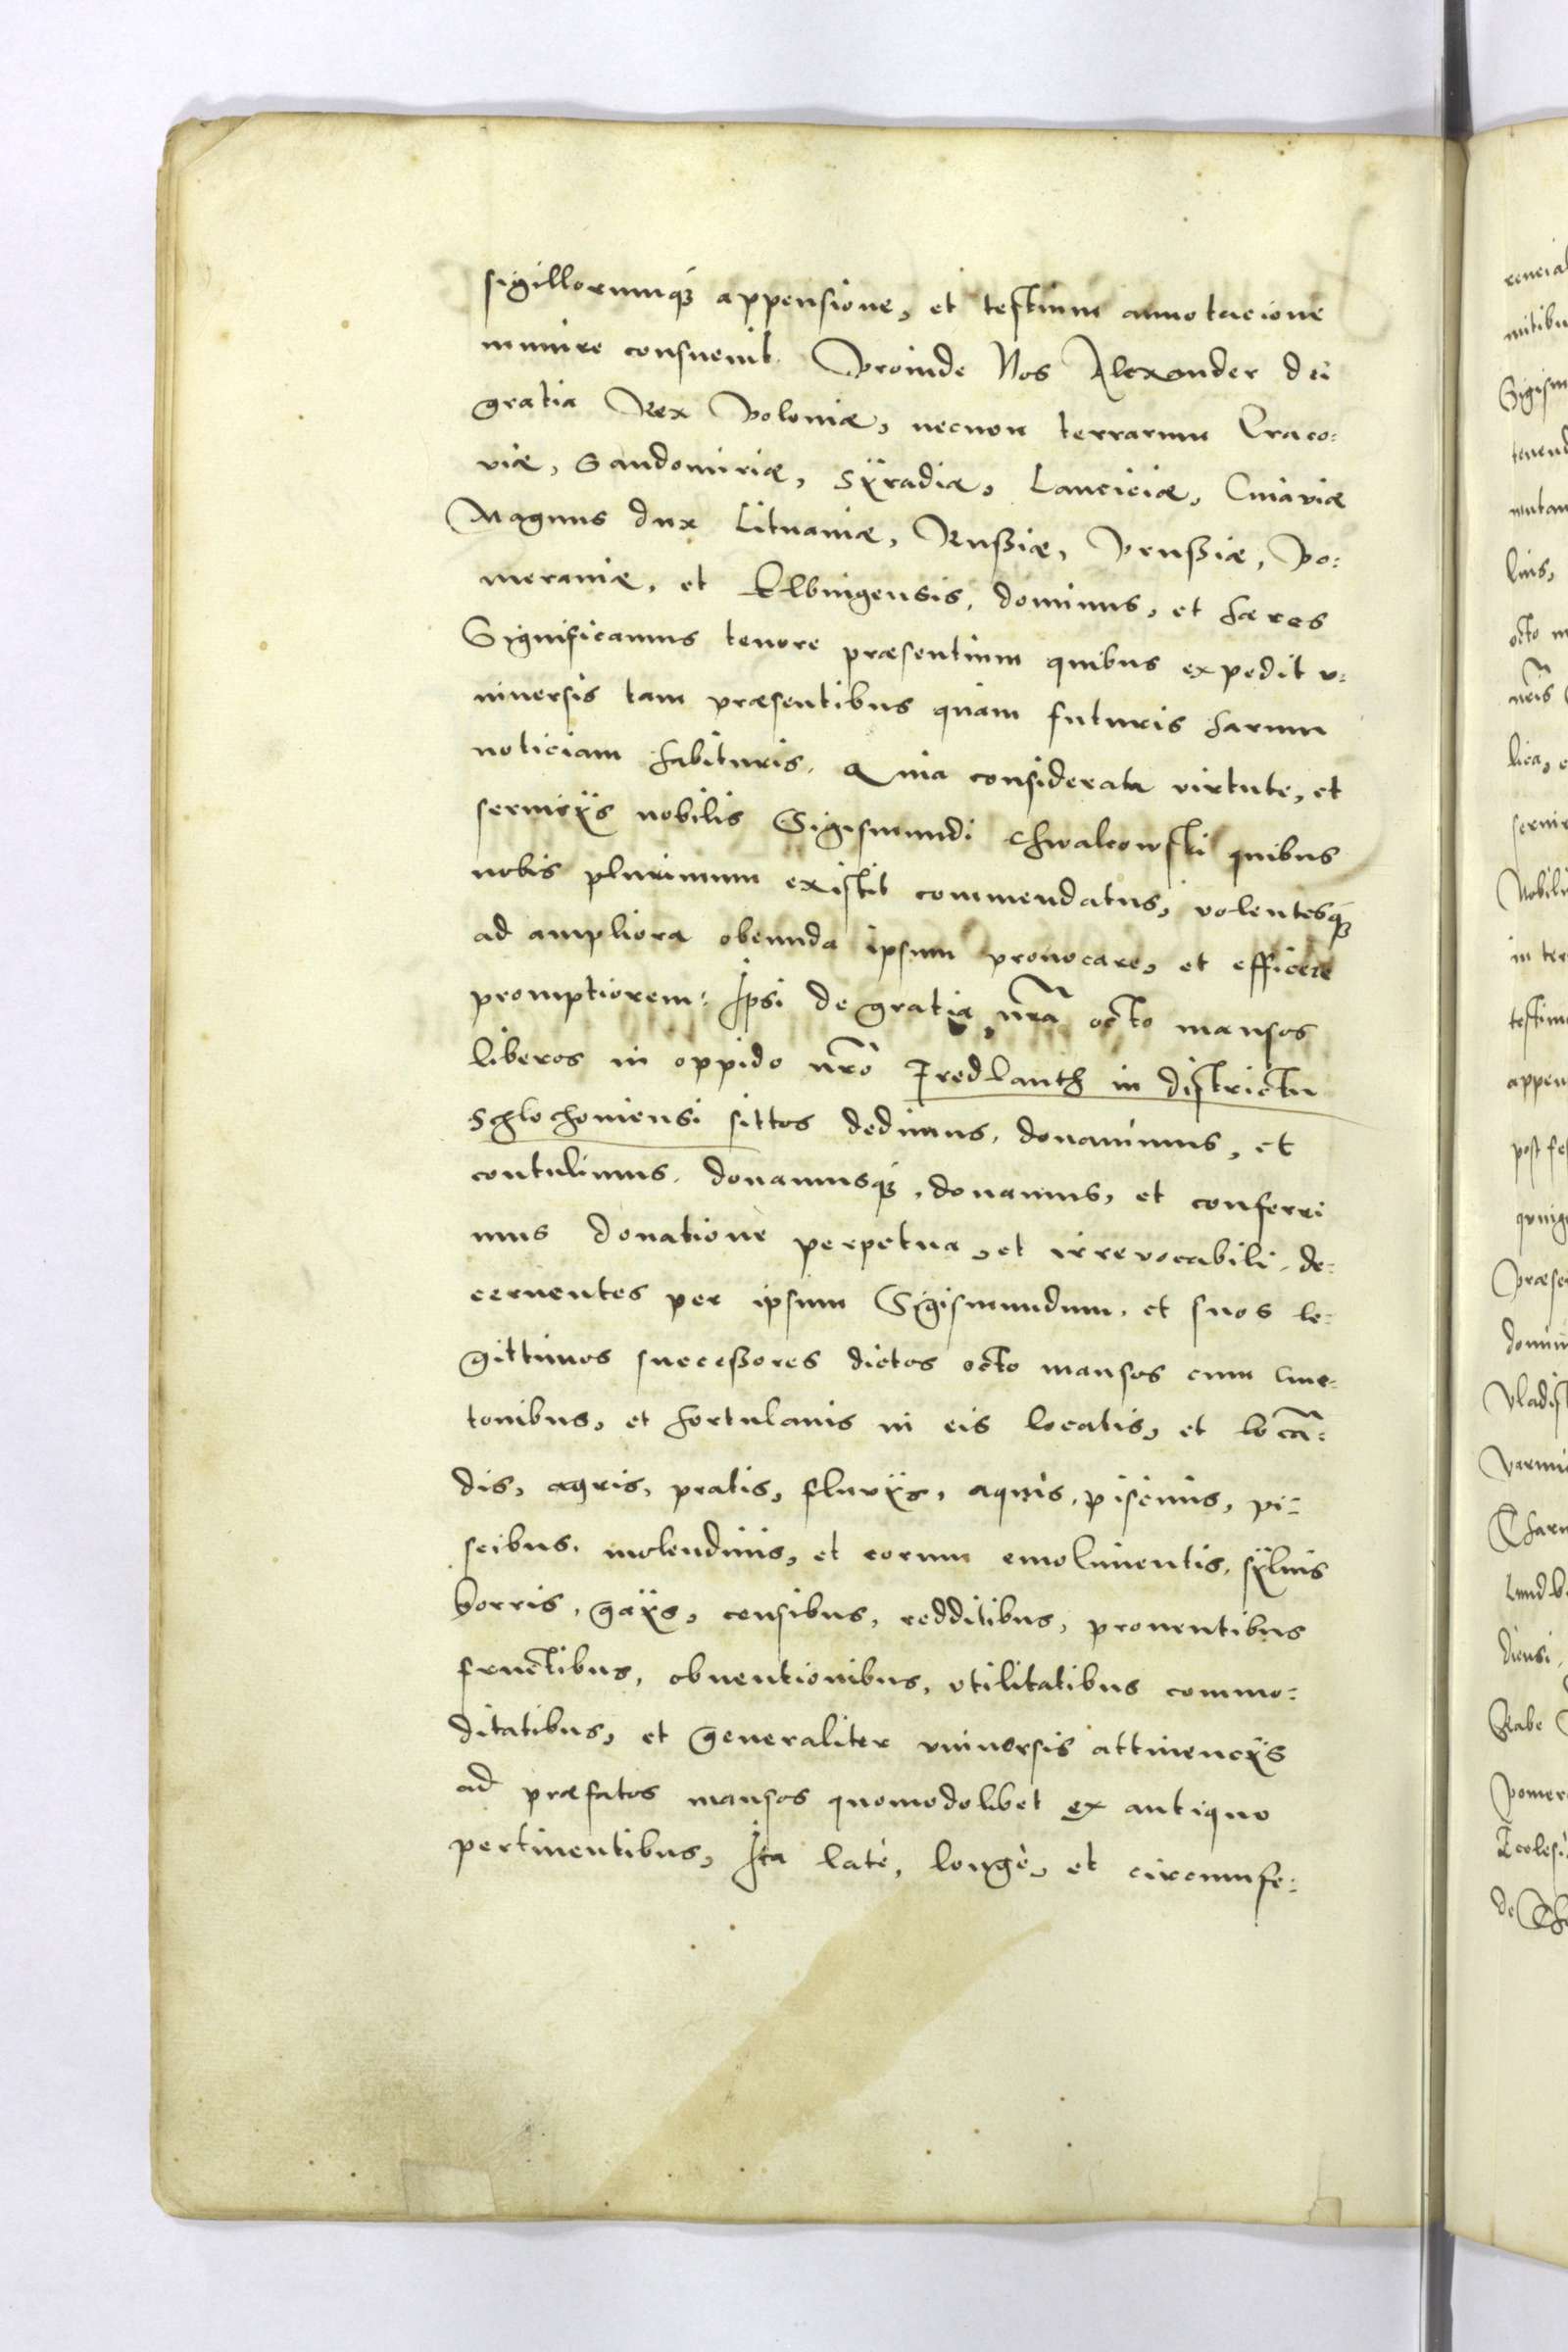 sigillorumq́ꝫ appensione, et testium annotacione
munire consuenit. Proinde Nos Alexander dei
gratia Rex Poloniæ, necnon terrarum Craco:
viæ, Sandomiriæ, Sÿradiæ, Lanciciæ, Cuiaviæ
Magnus dux Lituaniæ, Rußiæ, Prußiæ, Po:
meraniæ, et Elbingensis, dominus, et hæres
Significamus tenore præsentium quibus expedit v:
niuersis tam præsentibus quam futuris harum
noticiam habituris. Quia considerata virtute, et
seruicÿs nobilis Sigismundi Chwalcowski quibus
nobis plurimum existit commendatus, volentesq́ꝫ
ad ampliora obeunda ipsum prouocare, et efficere
promptiorem: Ipsi de gratia nr̃a octo mansos
liberos in oppido nr̃o Fredlanth in districtu
Schlochouiensi sittos dedimus, donauimus, et
contulimus, donamusq́ꝫ, donamus, et conferri
mus donatione perpetua, et irrevocabili, de:
cernentes per ipsum Sigismundum, et suos le:
gittimos succeßores dictos octo mansos cum Cme:
tonibus, et hortulanis in eis locatis, et locã:
dis, agris, pratis, fluvÿs, aquis, piscinis, pi:
scibus, molendinis, et eorum emolumentis, sÿluis
borris, gaÿs, censibus, redditibus, prouentibus
fructibus, obuentionibus, vtilitatibus commo:
ditatibus, et generaliter vniuersis attinencÿs
ad præfatos mansos quomodolibet ex antiquo
pertinentibus, Ita latè, longè, et circumfe: